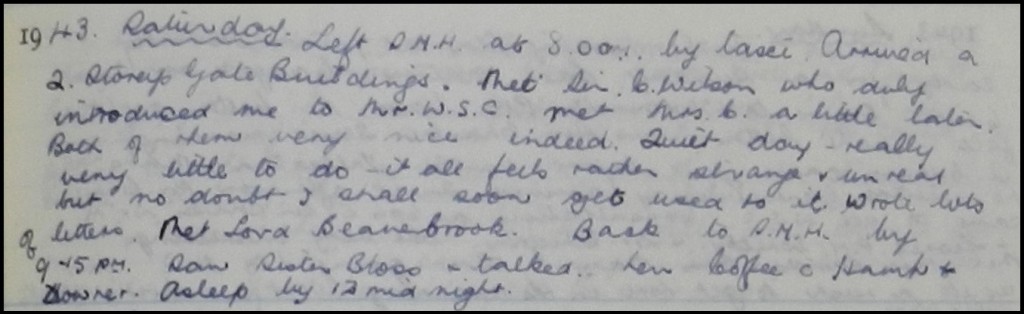 1943. Saturday. Left S.M.H. at 8.00 by taxi. Arrived a
2. Storeys Gate Buildings. Met Sir C. Wilson who duly
introduced me to Mr. W.S.C. met Mrs. C. a little later.
Both of them very nice indeed. Quiet day - really
very little to do - it all feels rather strange & unreal
but no doubt I shall soon get used to it. Wrote lots
of letters. Met Lord Beaverbrook. Back to S.M.H. by
9.45 PM. Saw Sister talked. Coffee c
Asleep by 12 mid night.